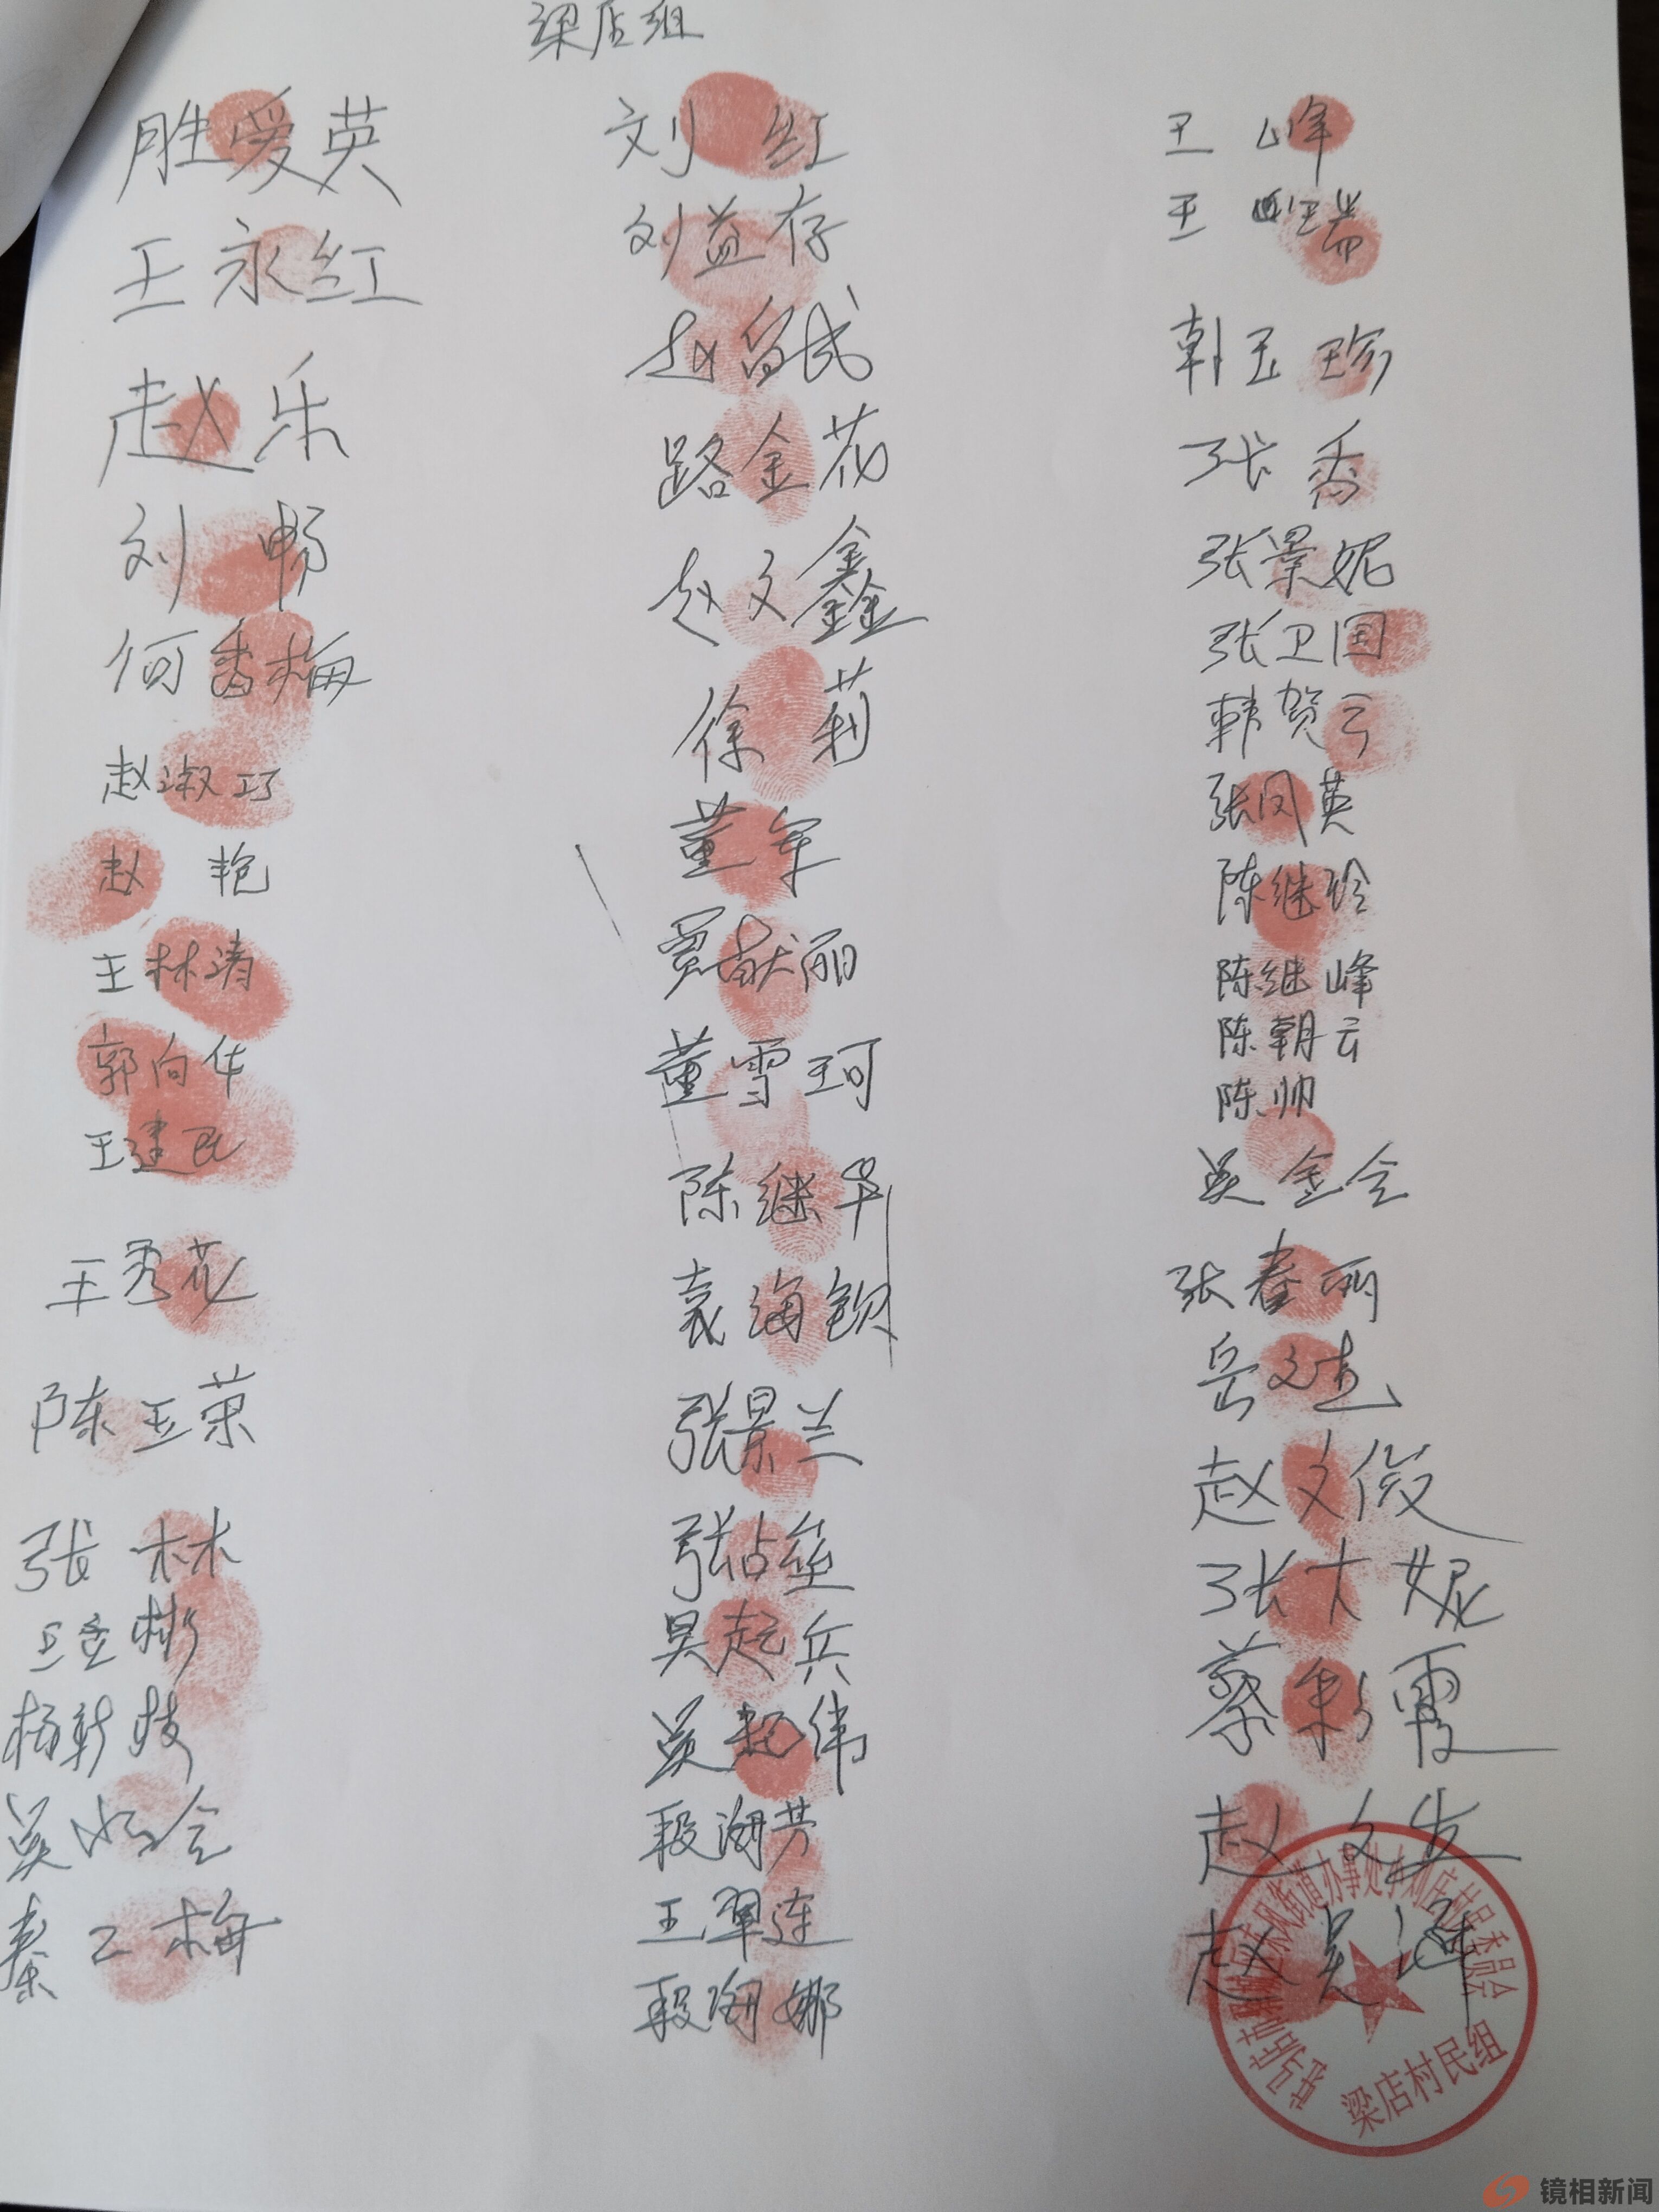 梁店组
胜爱英
王永红
赵乐
刘畅
何香梅
赵淑巧
赵艳
王林清
郭向华
王建民
王秀花
陈玉荣
张林
彬
杨新枝
吴 会
秦二梅
刘红
刘益存
赵 成
路金花
赵文鑫
徐莉
董军
贾献丽
董雪珂
陈继华
袁海钦
张景兰
张占垒
吴起兵
吴起伟
段海芳
王翠连
段海娜
王峰
王 瑞
韩玉珍
张香
张景妮
张卫国
韩贺云
张凤英
陈继玲
陈继峰
陈朝云
陈帅
吴金会
张春丽
岳文志
赵文俊
张大妮
蔡彩霞
赵文生
赵
梁店村民组
镜相新闻